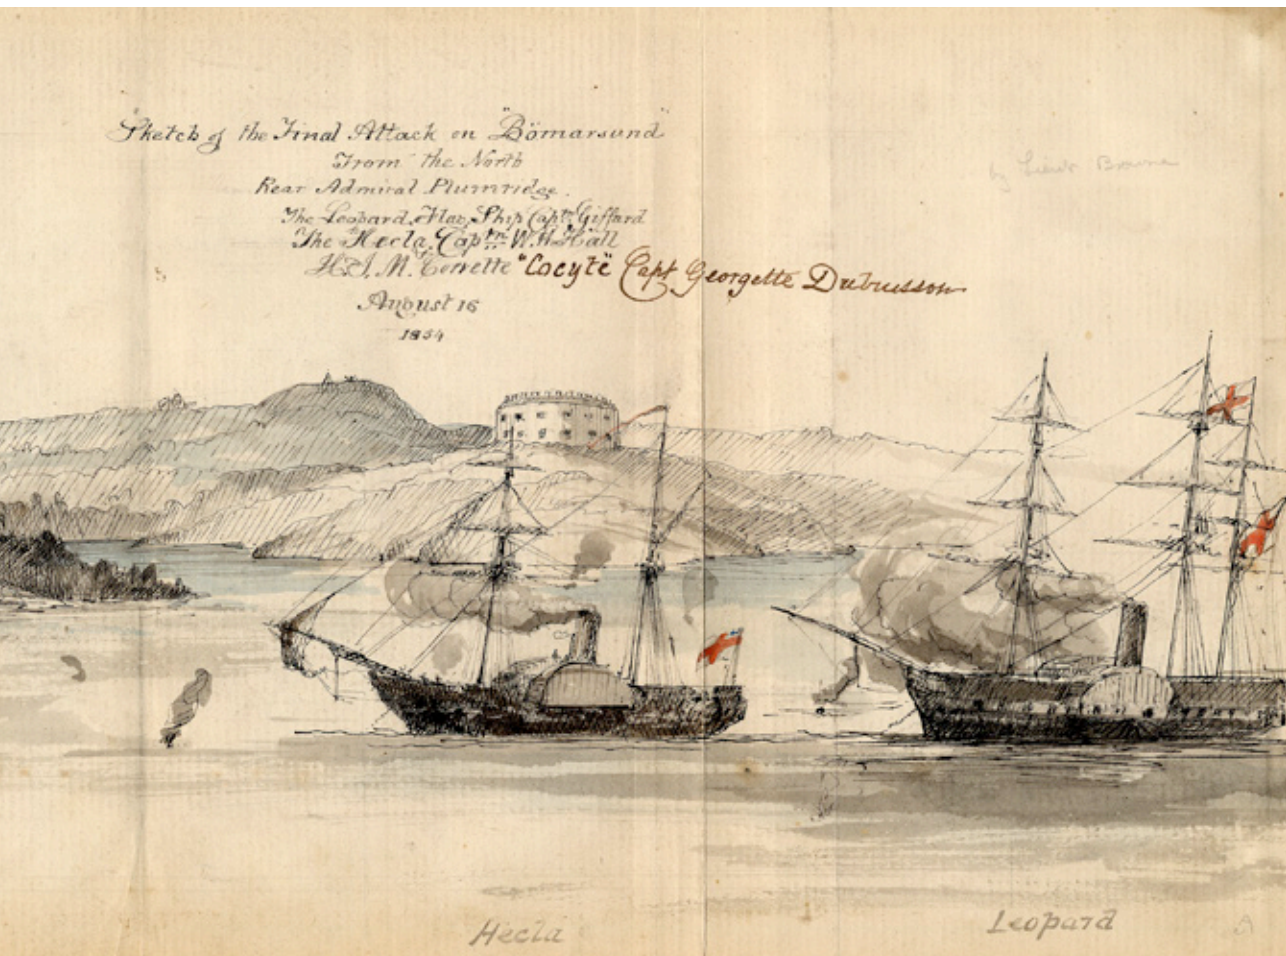 Sketch of the Final Attack on "Bömarsund"
From the North
Rear Admiral Plumridge.
The Leopard, Flag Ship Captn Giffard
The Hecla, Captn W. H. Hall
H. I. M. Corvette "Cocytë Capt Georgette Dubuisson
August 16
1854
by Lieut Browne
Hecla
Leopard